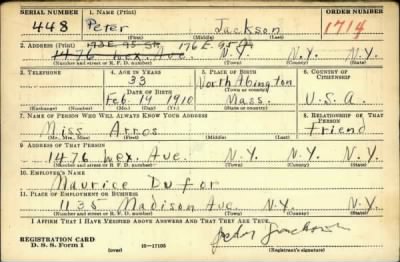 SERIAL NUMBER 1. NAME (Print) ORDER NUMBER
448 Peter Jackson 1714
(First) (Middle) (Last)
2. ADDRESS (Print) 173 E. 95 St. 176 E. 95 St
1476 Lex. Ave. N.Y. N.Y. N.Y.
(Number and street or R. F. D. number) (Town) (County) (State)
3. TELEPHONE 4. AGE IN YEARS 5. PLACE OF BIRTH 6. COUNTRY OF CITIZENSHIP
33 North Abington
DATE OF BIRTH (Town or county)
Feb. 14 1910 Mass. U.S.A.
(Exchange) (Number) (Mo.) (Day) (Yr.) (State or country)
7. NAME OF PERSON WHO WILL ALWAYS KNOW YOUR ADDRESS 8. RELATIONSHIP OF THAT PERSON
Miss Arros friend
(Mr., Mrs., Miss) (First) (Middle) (Last)
9. ADDRESS OF THAT PERSON
1476 Lex. Ave. N.Y. N.Y. N.Y.
(Number and street or R. F. D. number) (Town) (County) (State)
10. EMPLOYER'S NAME
Maurice Dufor
11. PLACE OF EMPLOYMENT OR BUSINESS
1135 Madison Ave N.Y. N.Y.
(Number and street or R. F. D. number) (Town) (County) (State)
I AFFIRM THAT I HAVE VERIFIED ABOVE ANSWERS AND THAT THEY ARE TRUE.
REGISTRATION CARD Peter Jackson
D. S. S. Form 1 (over) 16—17105 (Registrant's signature)